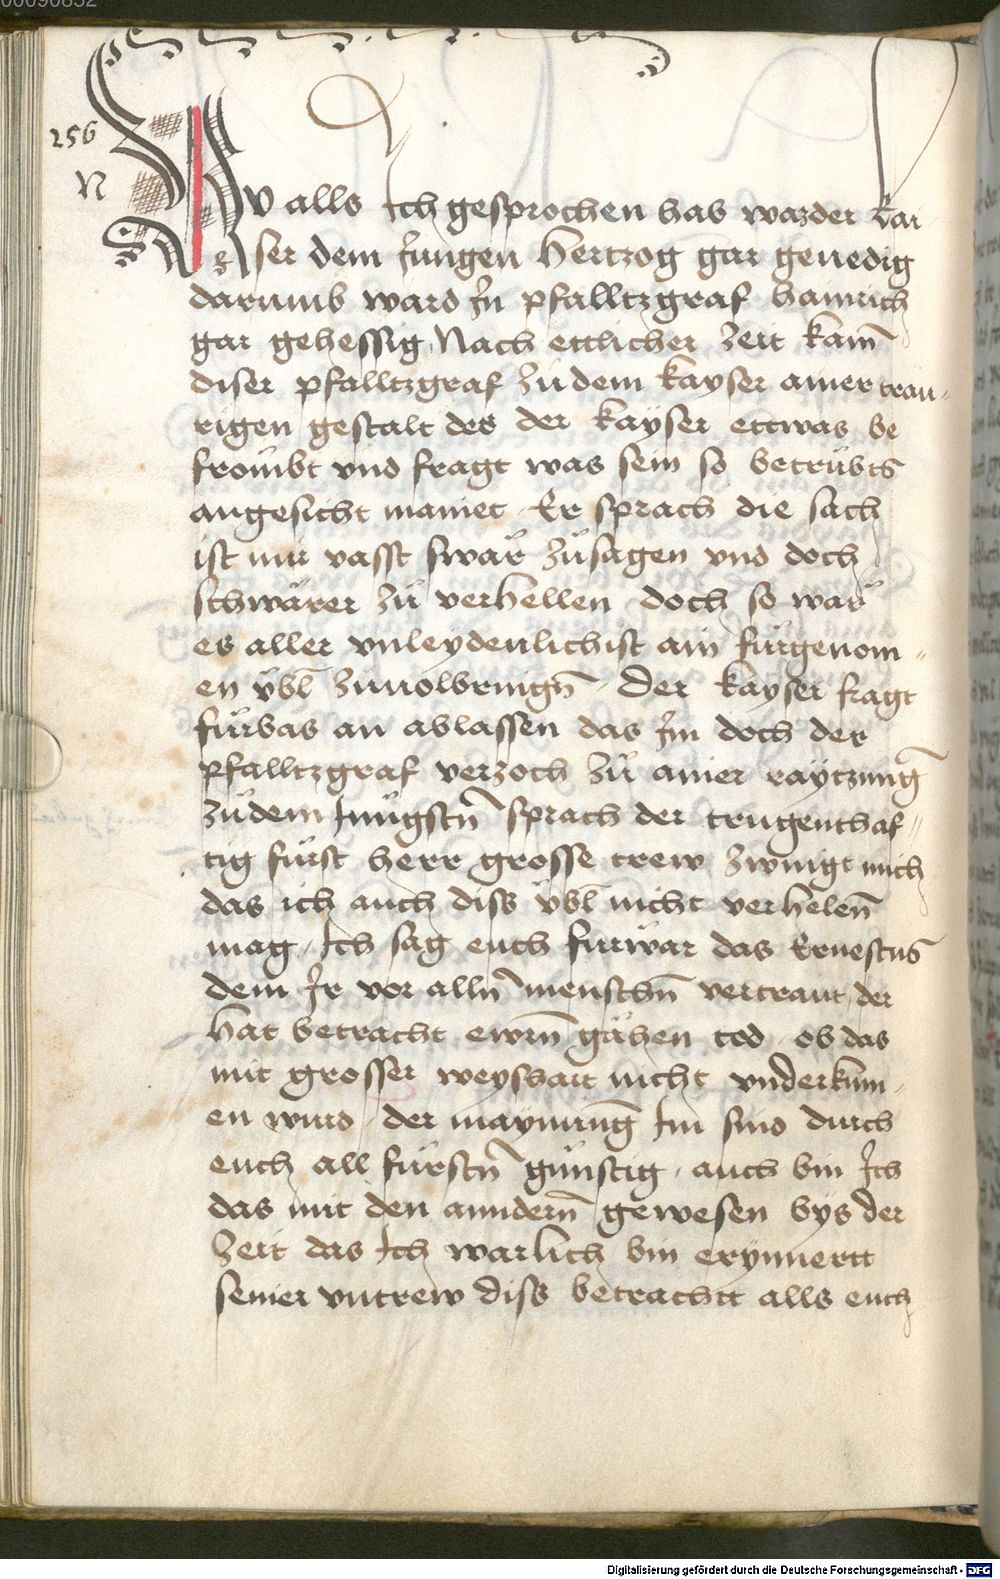 00090852
256
N
Nv alls Ich gesprochen hab waz der kai
ser dem Jungen hertzog gar genedig
darumb ward Jn pfalltzgraf hainrich
gar gehessig Nach ettlicher Zeit kam̄
diser pfalltzgraf zů dem kayser ainer trau-
rigen gestalt des der kayser ettwas be
frombt vnd fragt was sein so betrůbts
angesicht mainet Er sprach die sach
ist mir vasst swar zů sagen vnd doch
schwårer zů verhellen doch so wår
es aller vnleydenlichist ain fürgenom-
en übl zuuolbringn̄ Der kayser fragt
fürbas an ablassen das Jm doch der
pfalltzgraf verzoch zů ainer raytzung
zů dem Jungstn̄ sprach der trugenthaf-
tig fürst herr grosse trew zwingt mich
das ich auch diss übl nicht verhelen̄
mag Ich sag euch furwar das Ernestus
dem Jr vor alln̄ menschn̄ vertraut der
hat betracht ewrn̄ gåhen tod ob das
mit grosser weyshait nicht vnderkum-
en wird der maynung Im sind durch
euch all fürstn̄ günstig auch bin Ich
das mit den anndern̄ gewesen bys der
Zeit das Ich warlich bin erynnertt
seiner vntrew diss betrachtt alls euch
Digitalisierung gefördert durch die Deutsche Forschungsgemeinschaft - DFG